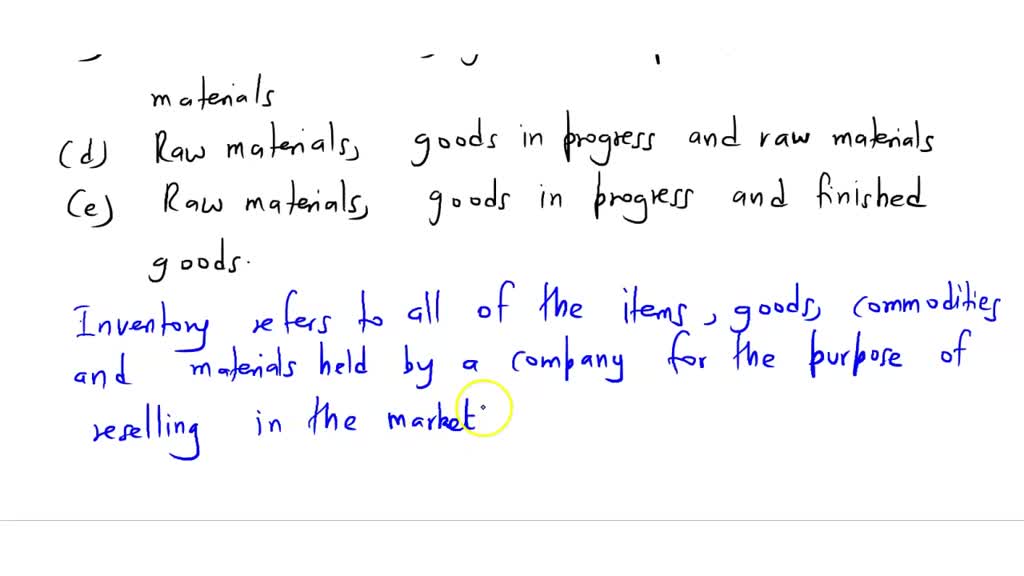 materials
(d) Raw materials, goods in progress and raw materials
(e) Raw materials, goods in progress and finished
goods.
Inventory refers to all of the items, goods, commodities
and materials held by a company for the purpose of
reselling in the market